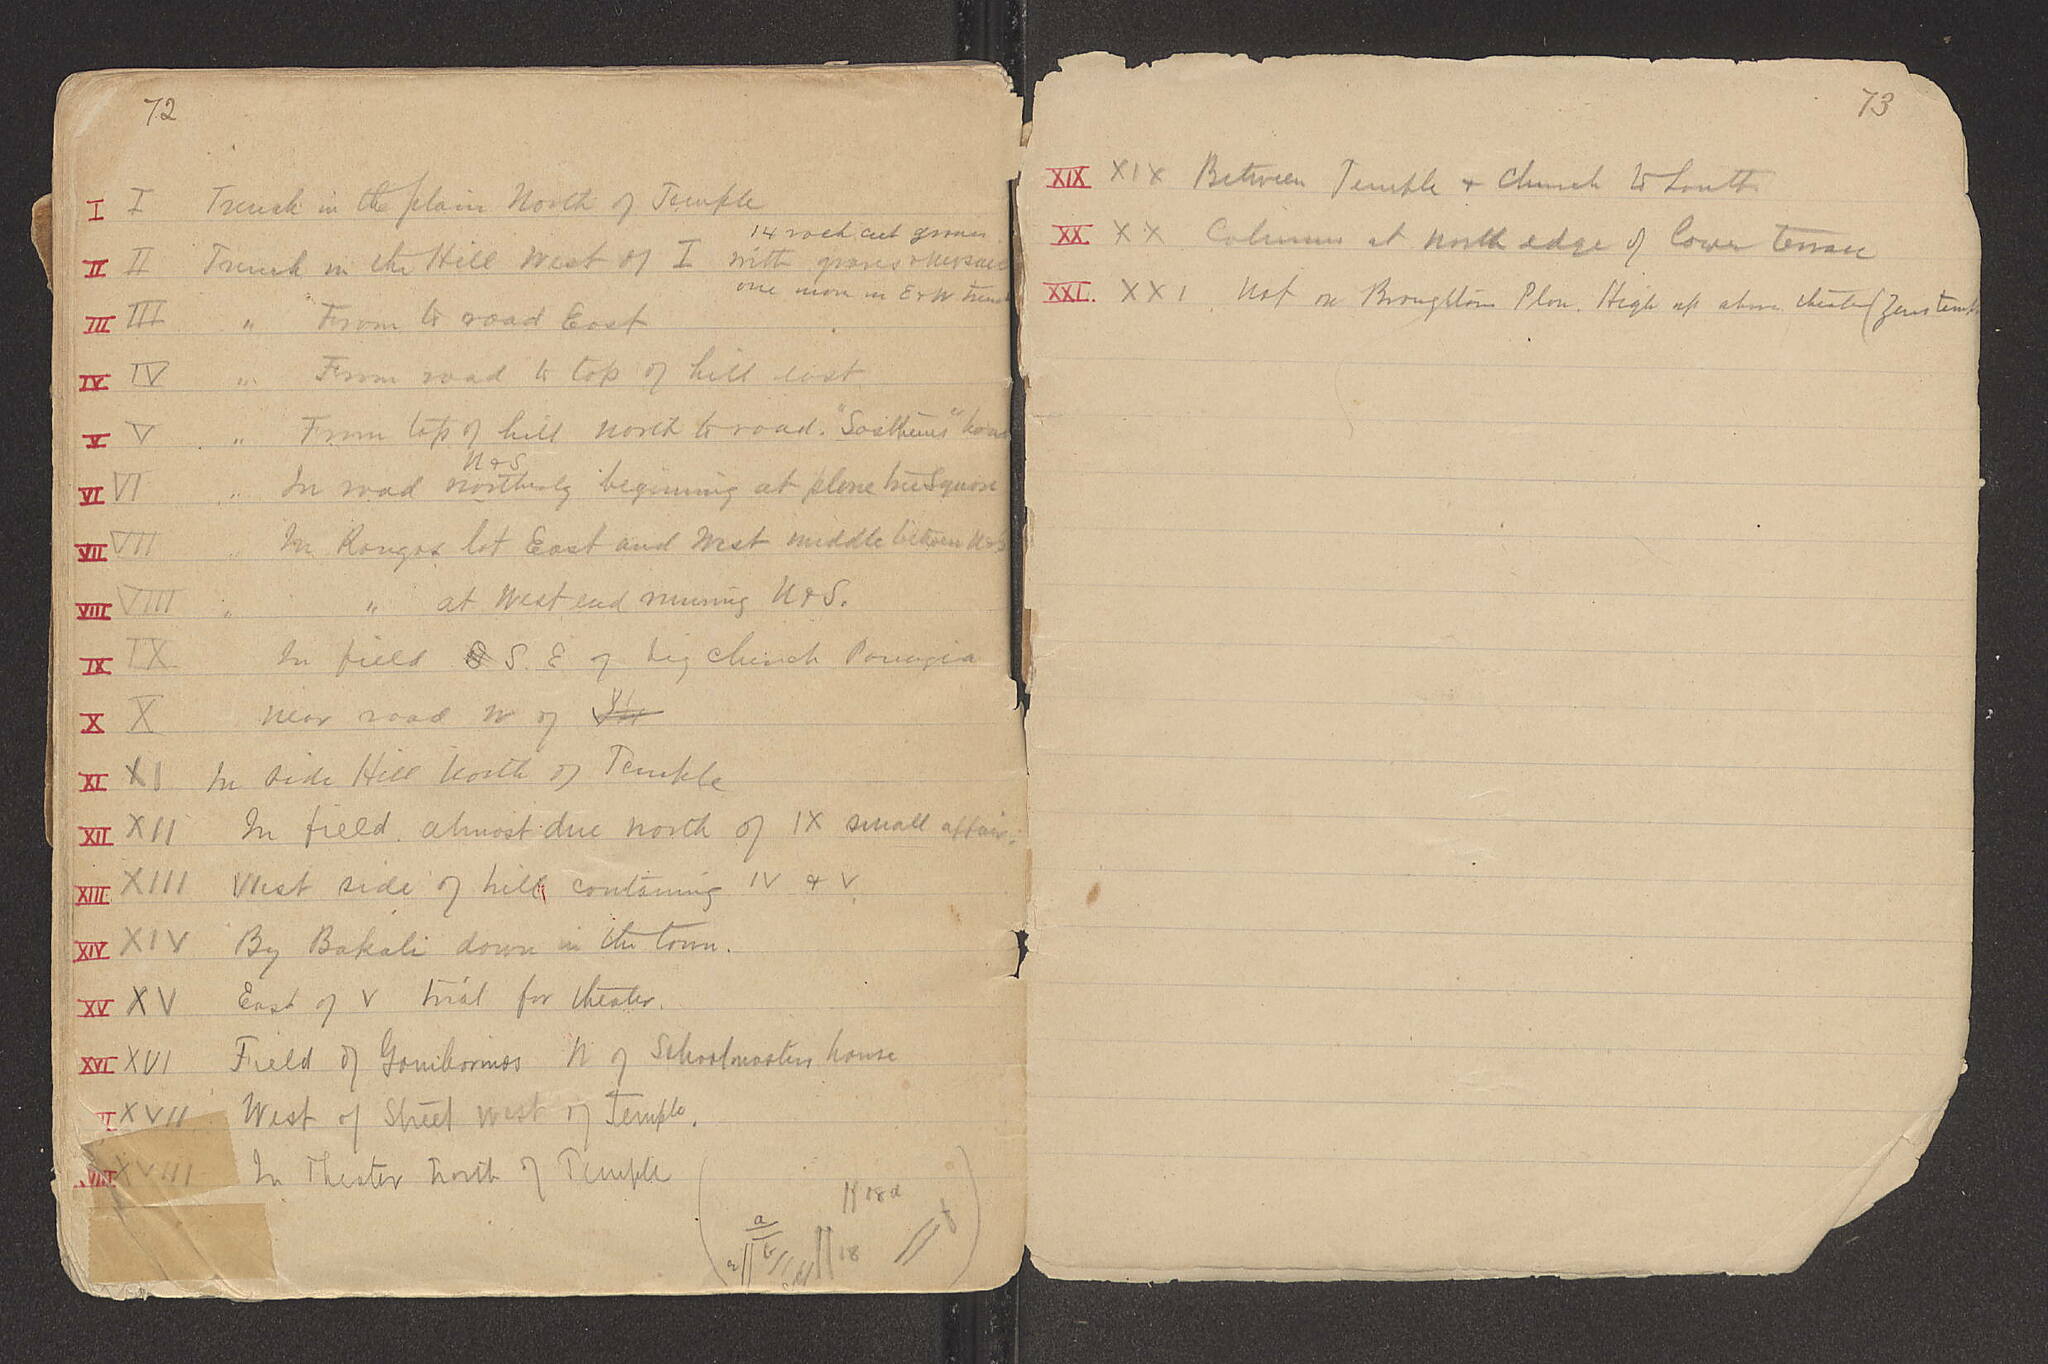 72
I I Trench in the plain North of Temple
14 rock cut graves
II II Trench in the Hill West of I with graves
one more in E & W trench
III III " From to road East
IV IV " From road to top of hill east
V V " From top of hill north to road. "Sosthenes"
N & S
VI VI " In road northerly beginning at plane tree Square
VII VII " In Rongos lot East and West middle between N & S
VIII VIII " " at West end running N & S.
IX IX In field S. E of big church Panagia
X X Near road N of
XI XI In side Hill North of Temple
XII XII In field almost due north of IX small affair.
XIII XIII West side of hill containing IV & V.
XIV XIV By Bakali down in the town.
XV XV East of V trial for theater.
XVI XVI Field of N of Schoolmasters house
II XVII West of Street West of Temple.
VIII XVIII In Theater North of Temple
18a
a
b
18
73
XIX XIX Between Temple & Church to South
XX XX Columns at north edge of lower terrace
XXI. XXI Not on Broughtons Plan. High up above theater (Zeus temple